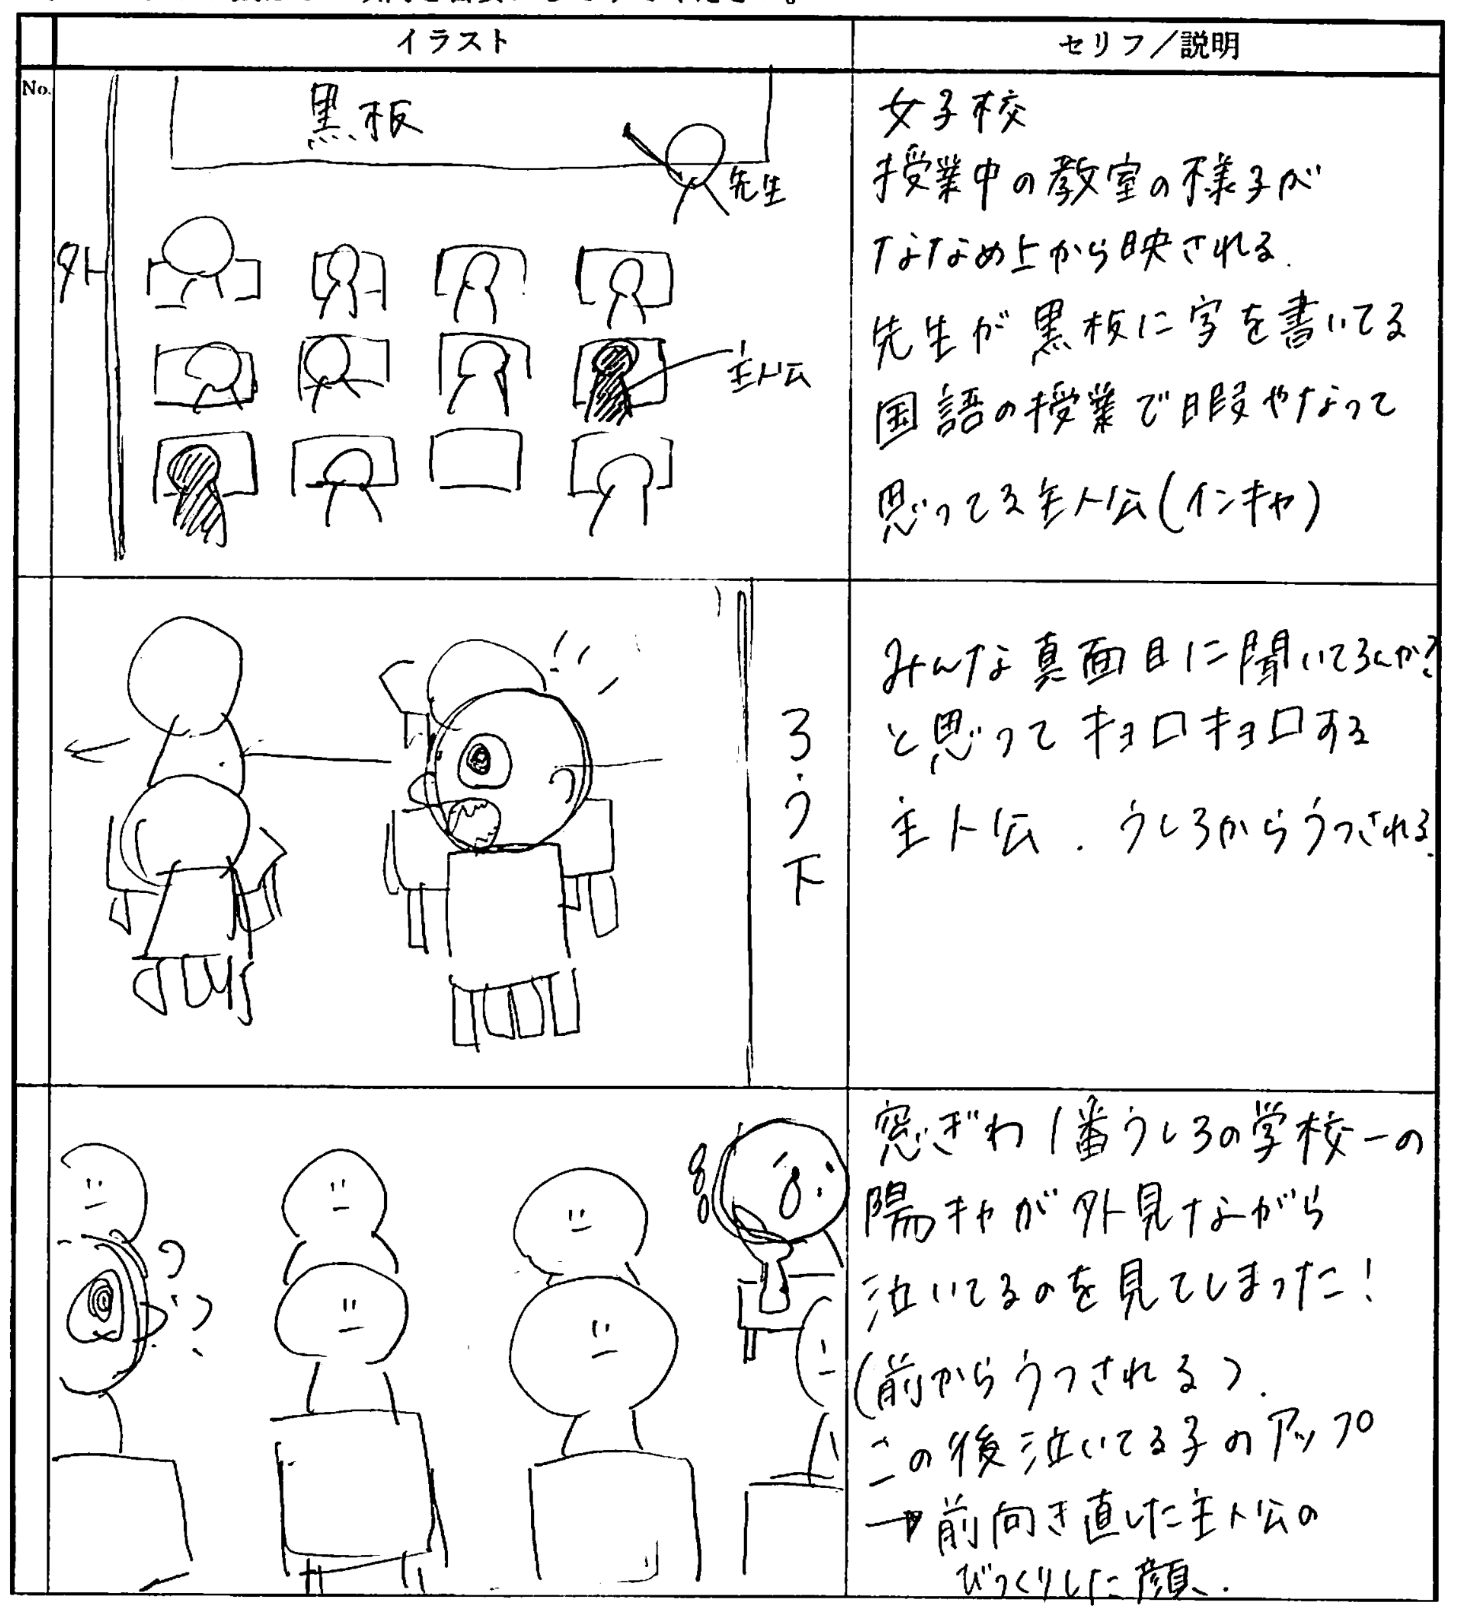 イラスト
セリフ／説明
No.
黒板
先生
外
主人公
女子校
授業中の教室の様子が
ななめ上から映される.
先生が黒板に字を書いてる
国語の授業で暇やなって
思ってる主人公(インキャ)
ろう下
みんな真面目に聞いてるんか?
と思ってキョロキョロする
主人公.うしろからうつされる.
窓ぎわ1番うしろの学校一の
陽キャが外見ながら
泣いてるのを見てしまった!
(前からうつされる).
この後泣いてる子のアップ
→前向き直した主人公の
びっくりした顔.